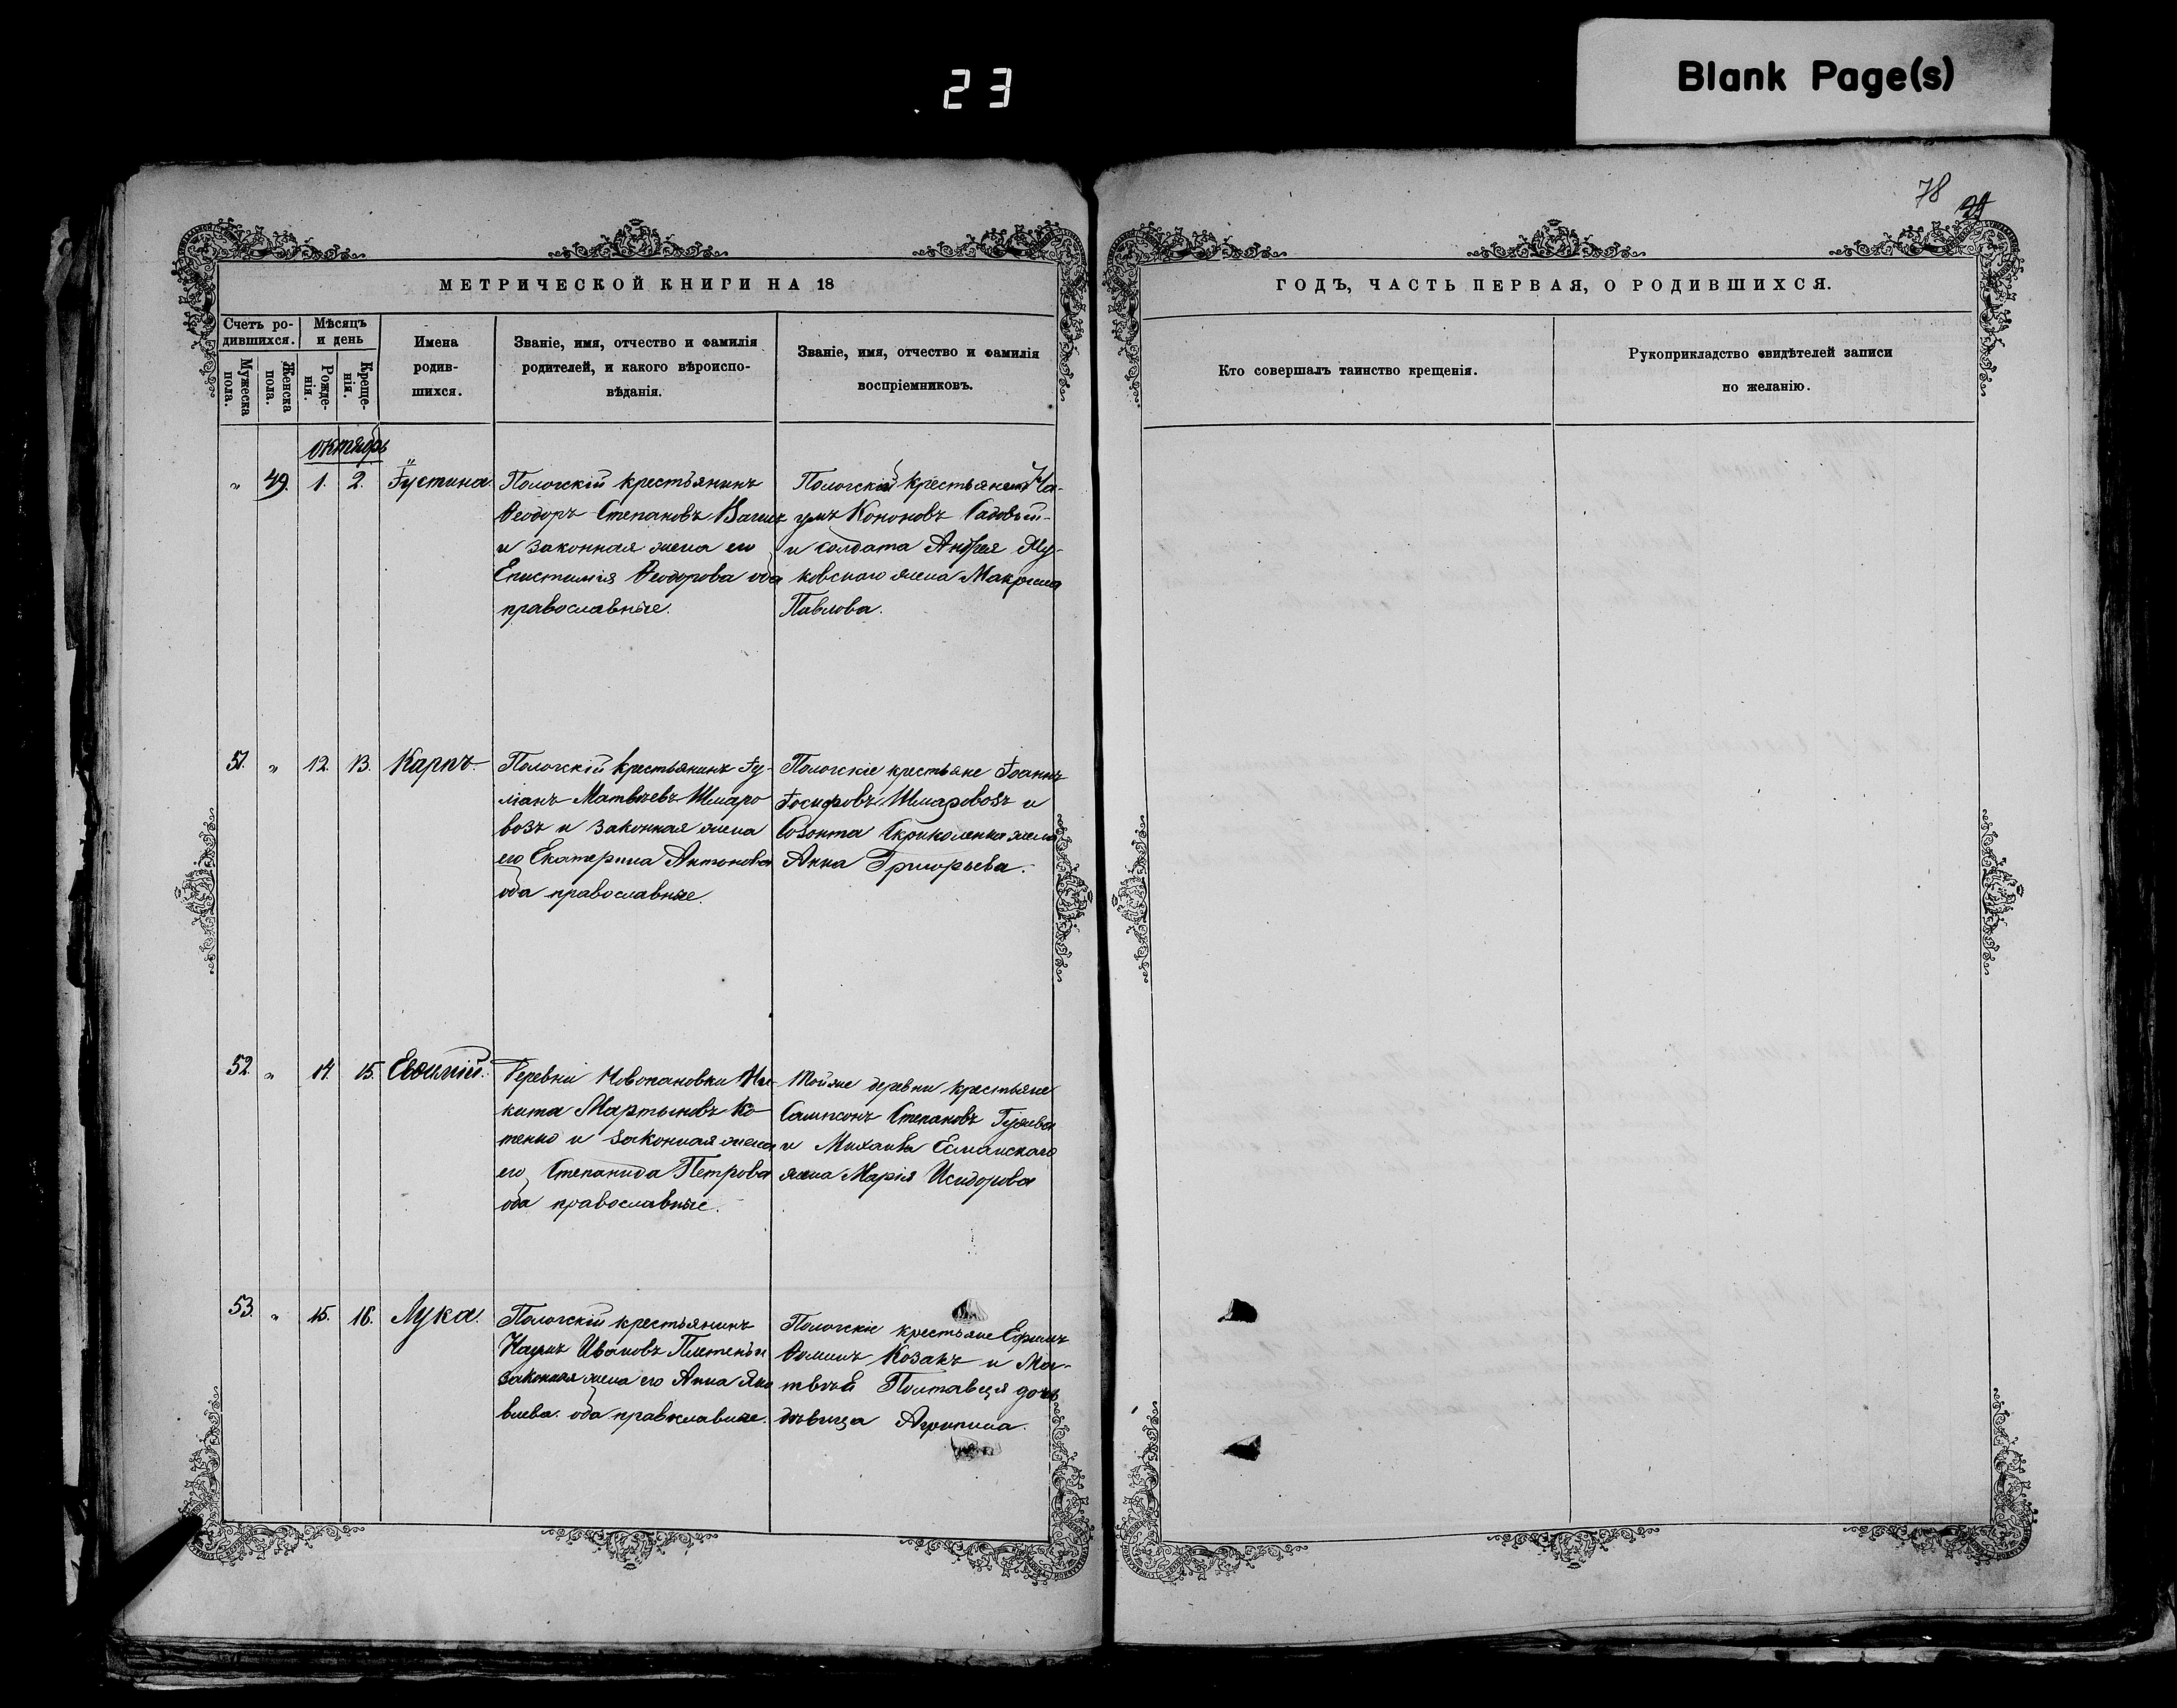 Blank Page(s)
23
78
МЕТРИЧЕСКОЙ КНИГИ НА 18
Счетъ ро-
дившихся.
Мѣсяцъ
и день
Мужеска пола.
Женска пола.
Рожде-
нія.
Креще-
нія.
Имена
родив-
шихся.
Званіе, имя, отчество и фамилія
родителей, и какого вѣроиспо-
вѣданія.
Званіе, имя, отчество и фамилія
воспріемниковъ.
октябрь
" 49. 1. 2. Іустина
Пологскій крестьянинъ
Ѳеодоръ Степановъ
и законная жена его
Епистимія Ѳеодорова оба
православные.
Пологскій крестьянинъ На-
умъ Кононовъ Садовый
и солдата Андрея
жена Макрина
Павлова.
51. " 12. 13. Карпъ
Пологскій крестьянинъ Іу-
ліанъ Матвѣевъ Шмаро
возъ и законная жена
его Екатерина Антонова
оба православные.
Пологскіе крестьяне Іоаннъ
Іосифовъ Шмаровозъ и
Созонта Скриколенка жена
Анна Григорьева.
52. " 14. 15. Евѳимій.
Деревни Новопановки Ни-
кита Мартыновъ Ко-
тенко и законная жена
его Степанида Петрова
оба православные.
Тойже деревни крестьяне
Сампсонъ Степановъ
и Михаила
жена Марія Исидорова
53. " 15. 16. Лука.
Пологскій крестьянинъ
Наумъ Ивановъ
законная жена его Анна Яко
влева. оба православные.
Пологскіе крестьяне Ефимъ
Ѳоминъ Козакъ и Мат-
твѣя Полтавця дочь
дѣвица Агрипина.
ГОДЪ, ЧАСТЬ ПЕРВАЯ, О РОДИВШИХСЯ.
Кто совершалъ таинство крещенія.
Рукоприкладство свидѣтелей записи
по желанію.